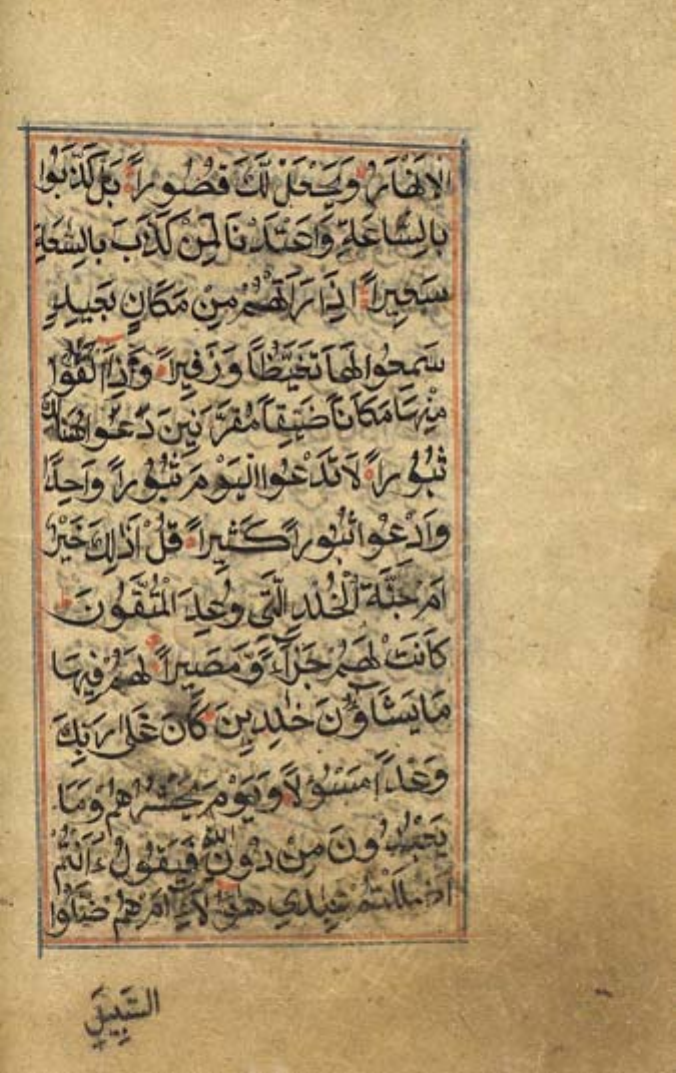 الاَنْهَارُ وَيَجْعَلْ لَّكَ قُصُوراً بَلْ كَذَّبُوا
بِالسَّاعَةِ وَاَعْتَدْنَا لِمَنْ كَذَّبَ بِالسَّعَةِ
سَعِيراً اِذَا رَاَتْهُمْ مِنْ مَكَانٍ بَعِيدٍ
سَمِعُوا لَهَا تَغَيُّظاً وَزَفِيراً وَاِذَا اُلْقُوا
مِنْهَا مَكَاناً ضَيِّقاً مُقَرَّنِينَ دَعَوْا هُنَالِكَ
ثُبُوراً لَا تَدْعُوا الْيَوْمَ ثُبُوراً وَاحِداً
وَادْعُوا ثُبُوراً كَثِيراً قُلْ اَذٰلِكَ خَيْرٌ
اَمْ جَنَّةُ الْخُلْدِ الَّتِي وُعِدَ الْمُتَّقُونَ
كَانَتْ لَهُمْ جَزَآءً وَّمَصِيراً لَهُمْ فِيهَا
مَا يَشَآؤُنَ خٰلِدِينَ كَانَ عَلٰى رَبِّكَ
وَعْداً مَسْؤُلاً وَيَوْمَ يَحْشُرُهُمْ وَمَا
يَعْبُدُونَ مِنْ دُونِ اللّٰهِ فَيَقُولُ ءَاَنْتُمْ
اَضْلَلْتُمْ عِبَادِي هٰٓؤُلَآءِ اَمْ هُمْ ضَلُّوا
السَّبِيلَ